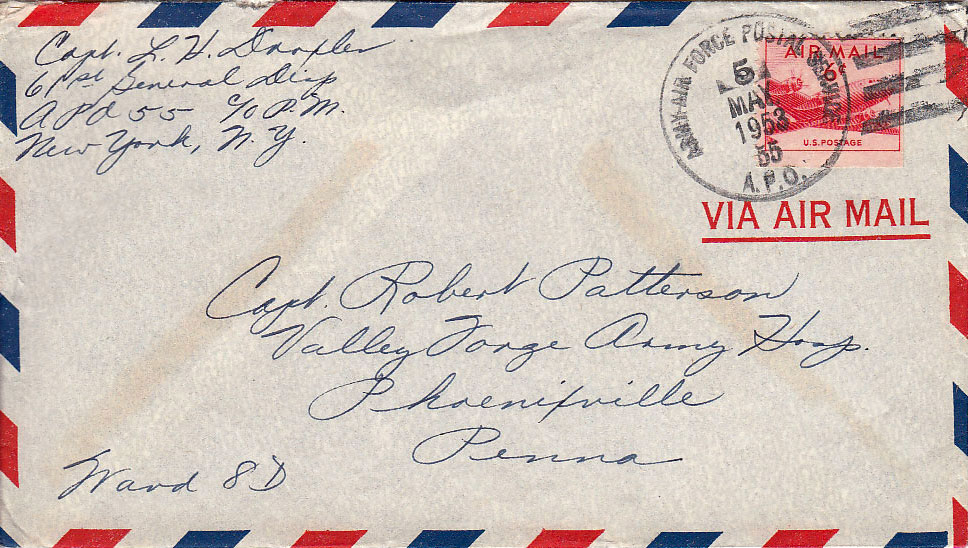 Capt. L. H. Draxler
61st General Disp
APO 55 c/o P.M.
New York, N.Y.
ARMY-AIR FORCE POSTAL SERVICE
5
MAY
1953
55
A.P.O.
AIR MAIL
6¢
U.S. POSTAGE
VIA AIR MAIL
Capt. Robert Patterson
Valley Forge Army Hosp.
Phoenixville
Penna
Ward 8D